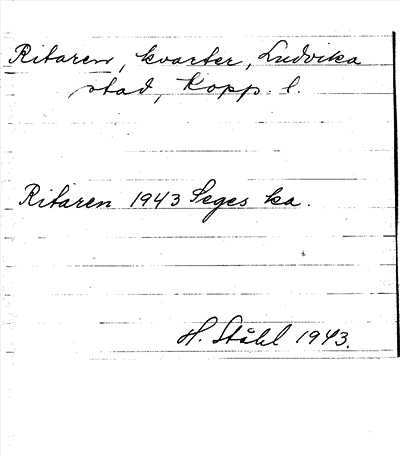 Ritaren, kvarter, Ludvika
stad, Kopp. l.
Ritaren 1943 Seges ka.
H. Ståhl 1943.